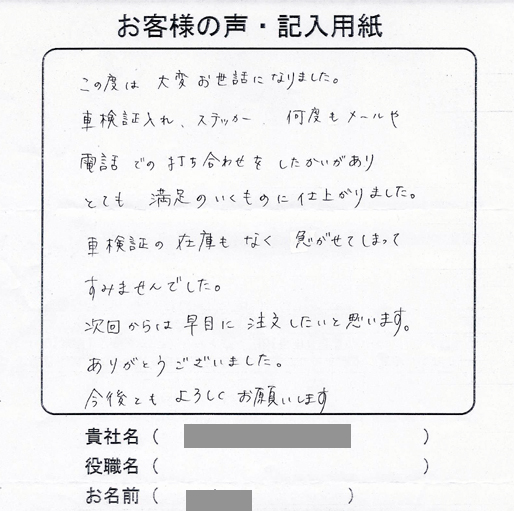 お客様の声・記入用紙
この度は 大変お世話になりました。
車検証入れ、ステッカー、何度もメールや
電話での打ち合わせをしたかいがあり
とても 満足のいくものに仕上がりました。
車検証の在庫もなく 急がせてしまって
すみませんでした。
次回からは早目に注文したいと思います。
ありがとうございました。
今後とも よろしくお願いします
貴社名（　　　）
役職名（　　　）
お名前（　　　）